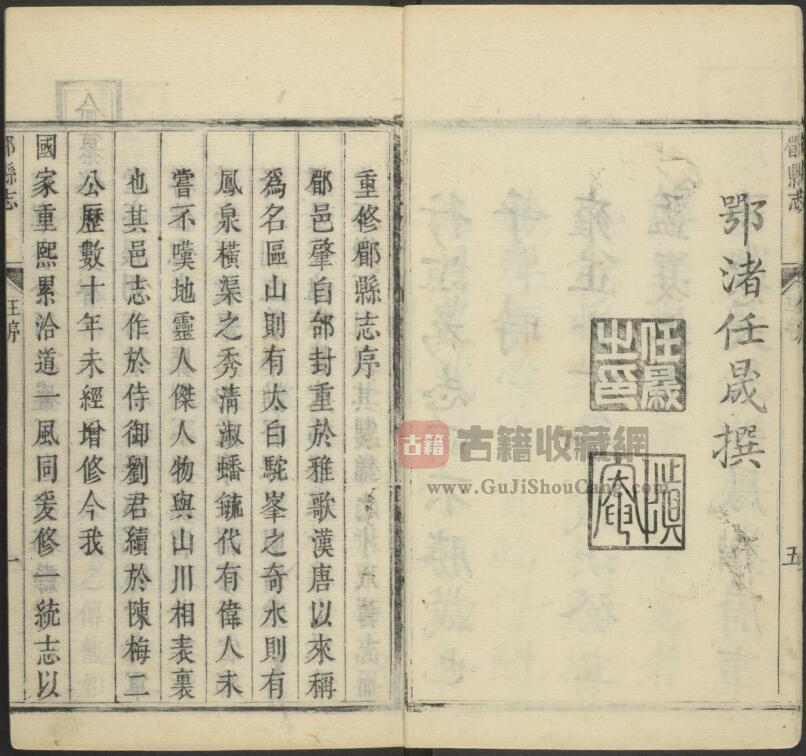 鄂渚任晟撰
任晟之印
五
郿縣志
重修郿縣志序
郿邑肇自邰封重於雅歌漢唐以來稱
爲名區山則有太白駝峯之奇水則有
鳳泉橫渠之秀清淑蟠毓代有偉人未
嘗不嘆地靈人傑人物與山川相表裏
也其邑志作於侍御劉君續於陳梅二
公歷數十年未經增修今我
國家重熙累洽道一風同爰修一統志以
郿縣志
王序
一
古籍
古籍收藏網
www.GuJiShouCang.com